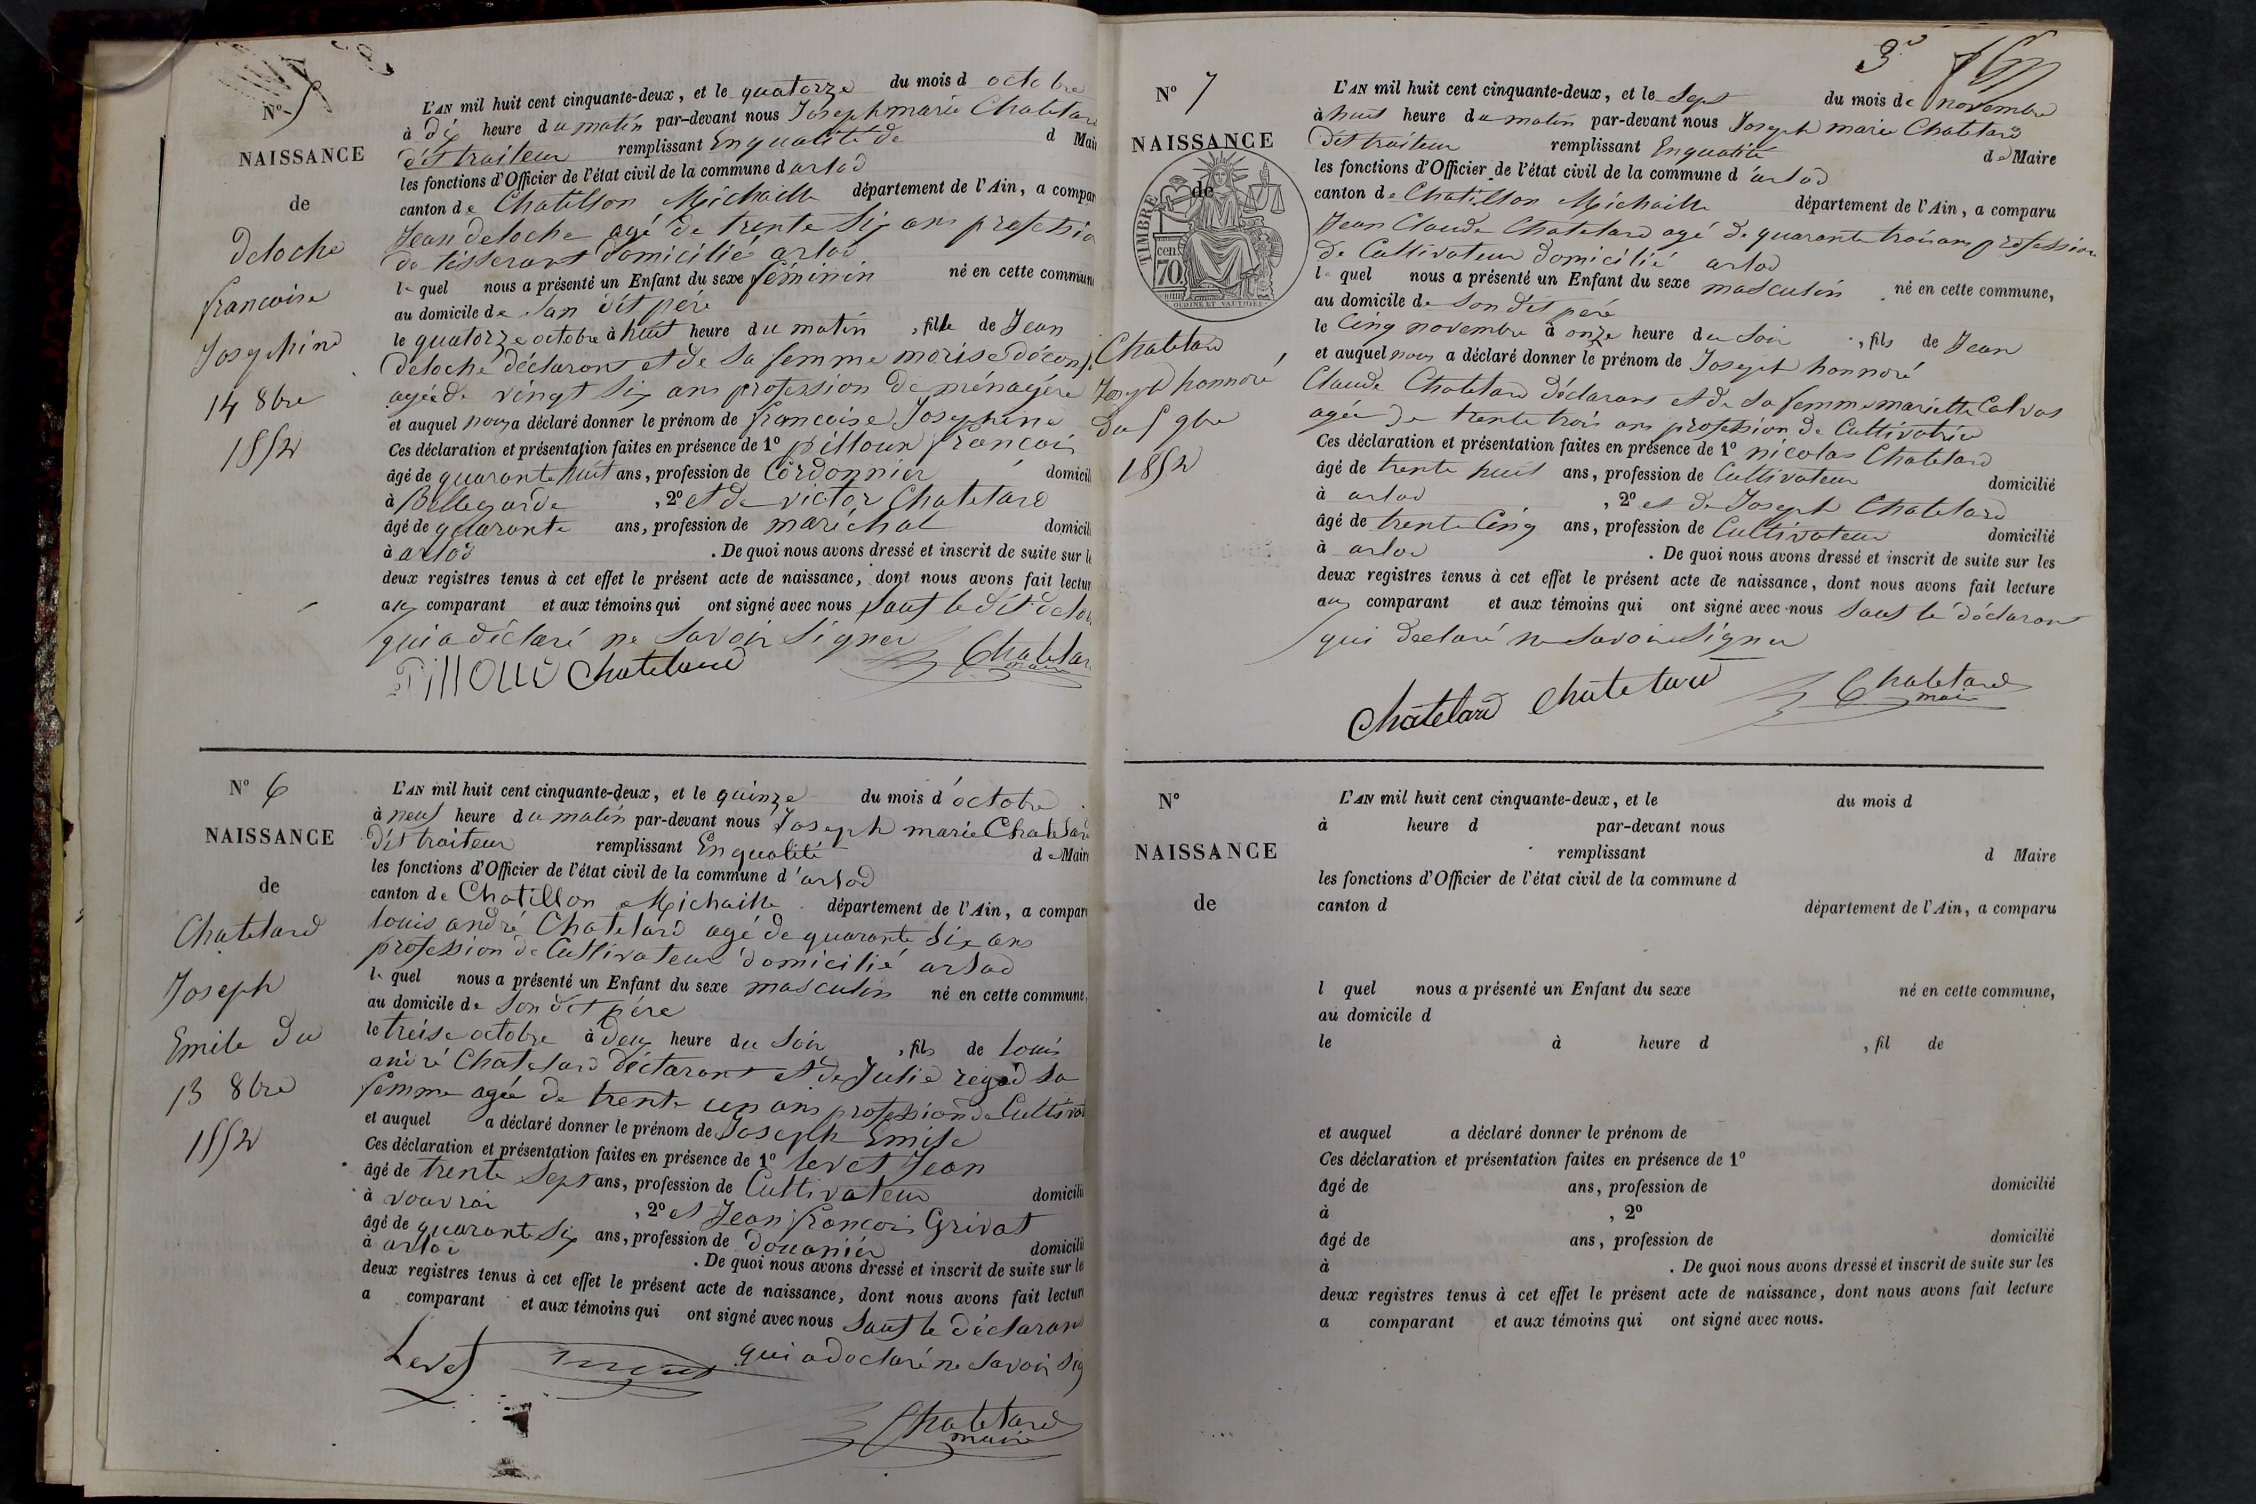 Nº 5
NAISSANCE
de
Deloche
francoise
Josephine
14 8bre
1852
L'AN mil huit cent cinquante-deux, et le quatorze du mois d octobre
à dix heure du matin par-devant nous Joseph marie Chatelard
dit traiteur remplissant En qualité de d Mair
les fonctions d'Officier de l'état civil de la commune d arlod
canton de Chatillon Michaille département de l'Ain, a compar
Jean deloche agé de trente six ans professio
de tisserant domicilié arlod
le quel nous a présenté un Enfant du sexe féminin né en cette commun
au domicile de son dit pere
le quatorze octobre à huit heure du matin , fille de Jean
Deloche déclarant et de sa femme
agée de vingt six ans profession de ménagère
et auquel nous a déclaré donner le prénom de francoise Josephine
Ces déclaration et présentation faites en présence de 1º pilloux francois
âgé de quarante huit ans, profession de Cordonnier domicili
à Bellegarde , 2º et de victor Chatelard
âgé de quarante ans, profession de maréchal domicili
à arlod . De quoi nous avons dressé et inscrit de suite sur le
deux registres tenus à cet effet le présent acte de naissance, dont nous avons fait lectur
aux comparant et aux témoins qui ont signé avec nous sauf le dit
qui a déclaré ne savoir signer
Chatelard Chatelar
maire
Nº 6
NAISSANCE
de
Chatelard
Joseph
Emile du
13 8bre
1852
L'AN mil huit cent cinquante-deux, et le quinze du mois d'octobre
à neuf heure du matin par-devant nous Joseph marie Chatelard
dit traiteur remplissant En qualité de Maire
les fonctions d'Officier de l'état civil de la commune d'arlod
canton de Chatillon Michaille département de l'Ain, a compar
louis andré Chatelard agé de quarante six ans
profession de Cultivateur domicilié arlod
le quel nous a présenté un Enfant du sexe masculin né en cette commune,
au domicile de son dit père
le treise octobre à deux heure du soir , fils de louis
andré Chatelard déclarant et de Julie sa
femme agée de trente un ans profession de Cultivat
et auquel a déclaré donner le prénom de Joseph Emile
Ces déclaration et présentation faites en présence de 1º levet Jean
âgé de trente sept ans, profession de Cultivateur domicilié
à vouvrai , 2º et Jean francois Grivat
âgé de quarante six ans, profession de douanier domicilié
à arlod . De quoi nous avons dressé et inscrit de suite sur le
deux registres tenus à cet effet le présent acte de naissance, dont nous avons fait lectur
a comparant et aux témoins qui ont signé avec nous sauf le déclaran
qui a declaré ne savoir sig
Levet
Chatelard
maire
3e
Nº 7
NAISSANCE
de
TIMBRE
70 cen.
Chatelard
Joseph honnoré
Du 5 9bre
1852
L'AN mil huit cent cinquante-deux, et le sept du mois de novembre
à huit heure du matin par-devant nous Joseph marie Chatelard
dit traiteur remplissant En qualité de Maire
les fonctions d'Officier de l'état civil de la commune d'arlod
canton de Chatillon Michaille département de l'Ain, a comparu
Jean Claude Chatelard agé de quarante trois ans profession
de Cultivateur domicilié arlod
le quel nous a présenté un Enfant du sexe masculin né en cette commune,
au domicile de son dit pere
le Cinq novembre à onze heure du soir , fils de Jean
et auquel nous a déclaré donner le prénom de Joseph honnoré
Claude Chatelard déclarant et de sa femme mariette
agée de trente trois ans profession de Cultivatrice
Ces déclaration et présentation faites en présence de 1º nicolas Chatelard
âgé de trente huit ans, profession de Cultivateur domicilié
à arlod , 2º et de Joseph Chatelard
âgé de trente Cinq ans, profession de Cultivateur domicilié
à arlod . De quoi nous avons dressé et inscrit de suite sur les
deux registres tenus à cet effet le présent acte de naissance, dont nous avons fait lecture
aux comparant et aux témoins qui ont signé avec nous sauf le déclarant
qui declaré ne savoir signer
Chatelard Chatelard Chatelard
maire
Nº
NAISSANCE
de
L'AN mil huit cent cinquante-deux, et le du mois d
à heure d par-devant nous
remplissant d Maire
les fonctions d'Officier de l'état civil de la commune d
canton d département de l'Ain, a comparu
l quel nous a présenté un Enfant du sexe né en cette commune,
au domicile d
le à heure d , fil de
et auquel a déclaré donner le prénom de
Ces déclaration et présentation faites en présence de 1º
âgé de ans, profession de domicilié
à , 2º
âgé de ans, profession de domicilié
à . De quoi nous avons dressé et inscrit de suite sur les
deux registres tenus à cet effet le présent acte de naissance, dont nous avons fait lecture
a comparant et aux témoins qui ont signé avec nous.